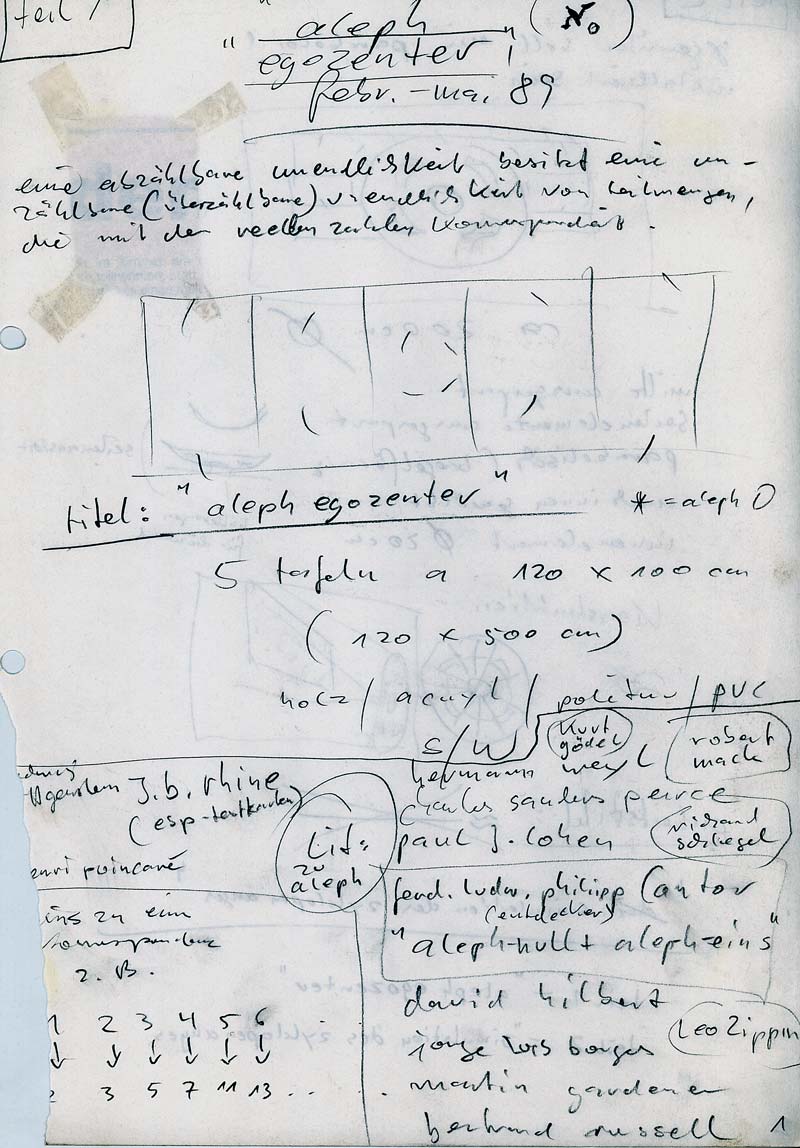 teil 1
(No)
"aleph
egozenter",
febr.-mai 89
eine abzählbare unendlichkeit besitzt eine un-
zählbare (überzählbare) unendlichkeit von teilmengen,
die mit den reellen zahlen korrespondiert.
titel: "aleph egozenter"
* = aleph 0
5 tafeln a 120 x 100 cm
(120 x 500 cm)
holz / acryl / politur / pvc
s/w
kurt
gödel
robert
mack
hermann weyl
charles sanders peirce
paul j. cohen
richard
schlegel
ferd. ludw. philipp cantor
(entdecker)
"aleph-null + aleph-eins"
david hilbert
jorge luis borges
Leo Zippin
martin gardener
bertrand russell
1
lit:
zu
aleph
j.b. rhine
(esp-testkarten)
enri poincaré
ins zu ein
korrespondenz
z.B.
1 2 3 4 5 6 . .
2 3 5 7 11 13 . . .